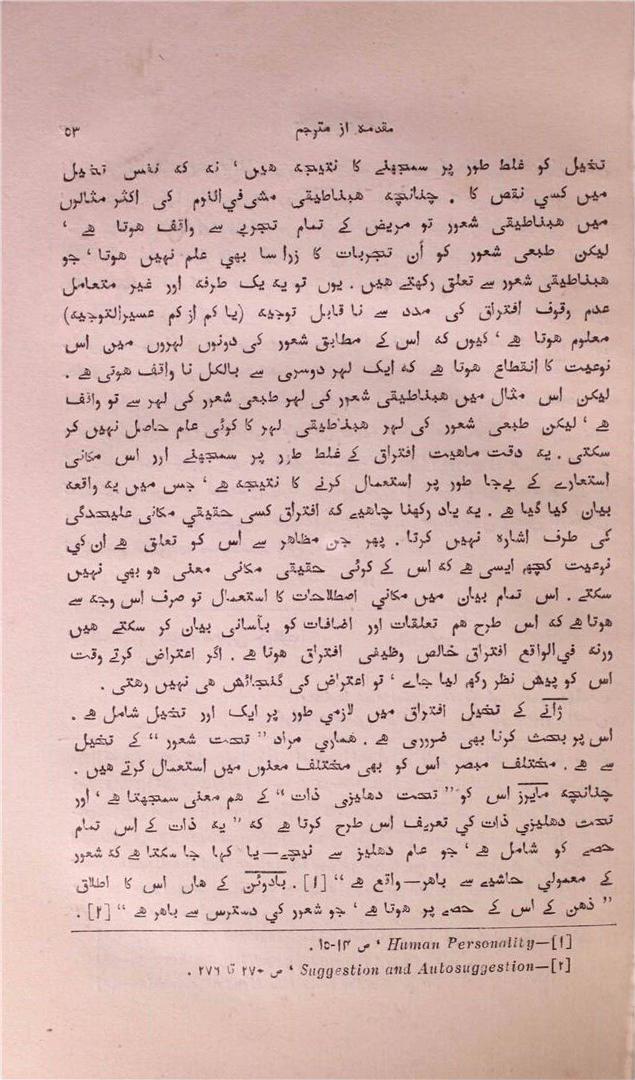 مقدمہ از مترجم ۵۳
تخیل کو غلط طور پر سمجھنے کا نتیجہ ھیں ، نہ کہ نفس تخیل
میں کسي نقص کا . چنانچہ ھپناطیقی مشی‌في‌النوم کی اکثر مثالوں
میں ھپناطیقی شعور تو مریض کے تمام تجربے سے واقف ھوتا ھے ،
لیکن طبعی شعور کو اُن تجربات کا ذرا سا بھي علم نہیں ھوتا ، جو
ھپناطیقی شعور سے تعلق رکھتے ھیں . یوں تو یہ یک طرفہ اور غیر متعامل
عدم وقوف افتراق کی مدد سے نا قابل توجیہ (یا کم از کم عسیرالتوجیہ)
معلوم ھوتا ھے ، کیوں کہ اس کے مطابق شعور کی دونوں لہروں میں اس
نوعیت کا انقطاع ھوتا ھے کہ ایک لہر دوسری سے بالکل نا واقف ھوتی ھے .
لیکن اس مثال میں ھپناطیقی شعور کی لہر طبعی شعور کی لہر سے تو واقف
ھے ، لیکن طبعی شعور کی لہر ھپناطیقی لہر کا کوئی علم حاصل نہیں کر
سکتی . یہ دقت ماھیت افتراق کے غلط طور پر سمجھنے اور اس مکانی
استعارے کے بےجا طور پر استعمال کرنے کا نتیجہ ھے ، جس میں یہ واقعہ
بیان کیا گیا ھے . یہ یاد رکھنا چاھیے کہ افتراق کسی حقیقي مکانی علیحدگی
کی طرف اشارہ نہیں کرتا . پھر جن مظاھر سے اس کو تعلق ھے ان کي
نوعیت کچھہ ایسی ھے کہ اس کے کوئی حقیقی مکانی معنی ھو بھی نہیں
سکتے . اس تمام بیان میں مکاني اصطلاحات کا استعمال تو صرف اس وجہ سے
ھوتا ھے کہ اس طرح ھم تعلقات اور اضافات کو بآسانی بیان کر سکتے ھیں
ورنہ في‌الواقع افتراق خالص وظیفی افتراق ھوتا ھے . اگر اعتراض کرتے وقت
اس کو پیش نظر رکھ لیا جاے ، تو اعتراض کی گنجائش ھی نہیں رھتی .
ژانے کے تخیل افتراق میں لازمي طور پر ایک اور تخیل شامل ھے .
اس پر بحث کرنا بھی ضروری ھے . ھماری مراد ” تحت شعور “ کے تخیل
سے ھے . مختلف مبصر اس کو بھی مختلف معنوں میں استعمال کرتے ھیں .
چنانچہ مایرز اس کو ” تحت دھلیزی ذات “ کے ھم معنی سمجھتا ھے ، اور
تحت دھلیزي ذات کي تعریف اس طرح کرتا ھے کہ ” یہ ذات کے اس تمام
حصے کو شامل ھے ، جو عام دھلیز سے نیچے—یا کہا جا سکتا ھے کہ شعور
کے معمولي حاشیے سے باھر—واقع ھے “ [۱] . بادوئن کے ھاں اس کا اطلاق
” ذھن کے اس کے حصے پر ھوتا ھے ، جو شعور کی دسترس سے باھر ھے “ [۲] .
[۱]—Human Personality ، ص ۱۴-۱۵ .
[۲]—Suggestion and Autosuggestion ، ص ۲۷۰ تا ۲۷۶ .